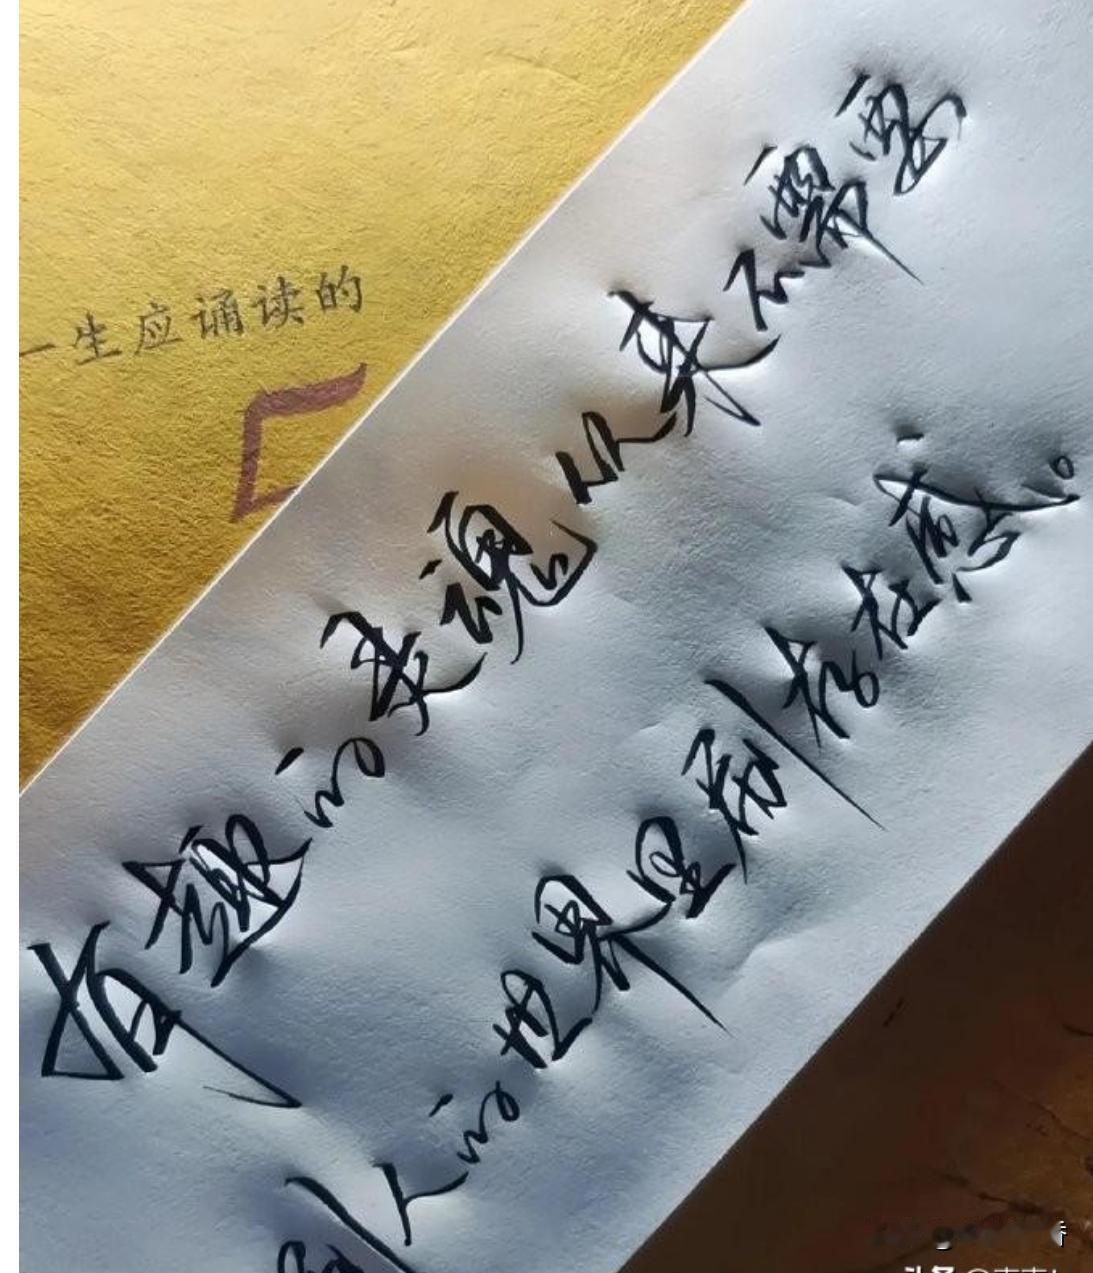 一生应诵读的
有趣的灵魂从来不需要
别人的世界里刷存在感。
头条